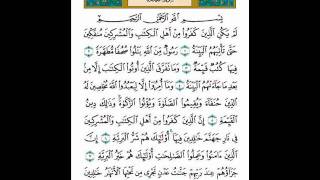 بِسْمِ اللَّهِ الرَّحْمَٰنِ الرَّحِيمِ
لَمْ يَكُنِ الَّذِينَ كَفَرُوا مِنْ أَهْلِ الْكِتَابِ وَالْمُشْرِكِينَ مُنْفَكِّينَ
حَتَّىٰ تَأْتِيَهُمُ الْبَيِّنَةُ ۝ رَسُولٌ مِنَ اللَّهِ يَتْلُو صُحُفًا مُطَهَّرَةً ۝
فِيهَا كُتُبٌ قَيِّمَةٌ ۝ وَمَا تَفَرَّقَ الَّذِينَ أُوتُوا الْكِتَابَ إِلَّا مِنْ
بَعْدِ مَا جَاءَتْهُمُ الْبَيِّنَةُ ۝ وَمَا أُمِرُوا إِلَّا لِيَعْبُدُوا اللَّهَ مُخْلِصِينَ لَهُ
الدِّينَ حُنَفَاءَ وَيُقِيمُوا الصَّلَاةَ وَيُؤْتُوا الزَّكَاةَ وَذَٰلِكَ دِينُ
الْقَيِّمَةِ ۝ إِنَّ الَّذِينَ كَفَرُوا مِنْ أَهْلِ الْكِتَابِ وَالْمُشْرِكِينَ
فِي نَارِ جَهَنَّمَ خَالِدِينَ فِيهَا أُولَٰئِكَ هُمْ شَرُّ الْبَرِيَّةِ ۝ إِنَّ
الَّذِينَ آمَنُوا وَعَمِلُوا الصَّالِحَاتِ أُولَٰئِكَ هُمْ خَيْرُ الْبَرِيَّةِ ۝
جَزَاؤُهُمْ عِنْدَ رَبِّهِمْ جَنَّاتُ عَدْنٍ تَجْرِي مِنْ تَحْتِهَا الْأَنْهَارُ خَالِدِينَ